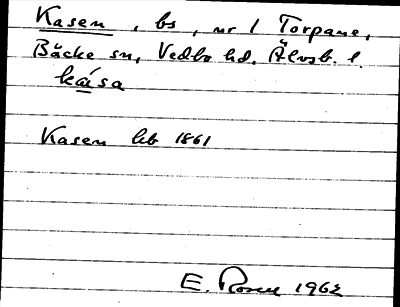 Kasen, bs, nr 1 Torpane,
Bäcke sn, Vedbo hd. Älvsb. l.
kása
Kasen hb 1861
E. Rosell 1962